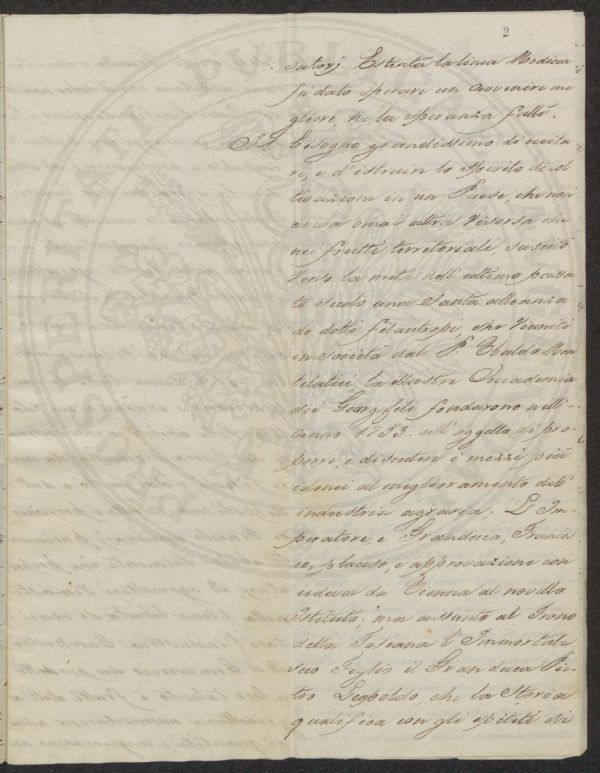 2
satorj. Estinta la linea Medicea
fu dato sperare un avvenire mi
gliore, ne la speranza fallì.
Il bisogno grandissimo di eccita
re, e d'istruire lo spirito di col
tivazione in un Paese, che non
aveva omai altra risorsa, che
nei frutti territoriali, suscitò
verso la metà dell'ultimo passa
to secolo una Santa alleanza
di dotti filantropi, che riuniti
in Società dal P. Ubaldo Mon
telatici la illustre Accademia
dei Georgofili fondarono nell'
anno 1753. all'oggetto di pro
porre, e discutere i mezzi più
idonei al miglioramento dell'
industria agraria. L'Im
peratore, e Granduca, Frances
co, plauso, e approvazione con
cedeva da Vienna al novello
Istituto; ma assunto al Trono
della Toscana l'Immortale
suo Figlio il Gran Duca Pie
tro Leopoldo, che la Storia
qualifica con gli epiteti di
PROSPERITATI PUBLICAE